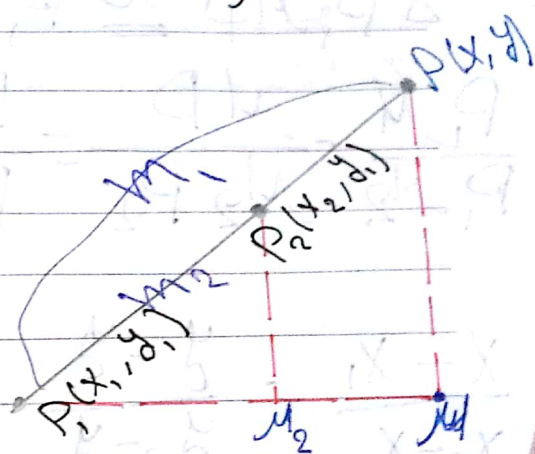 P(x, y)
m₁
P₂(x₂, y₁)
m₂
P₁(x₁, y₁)
M₂
M